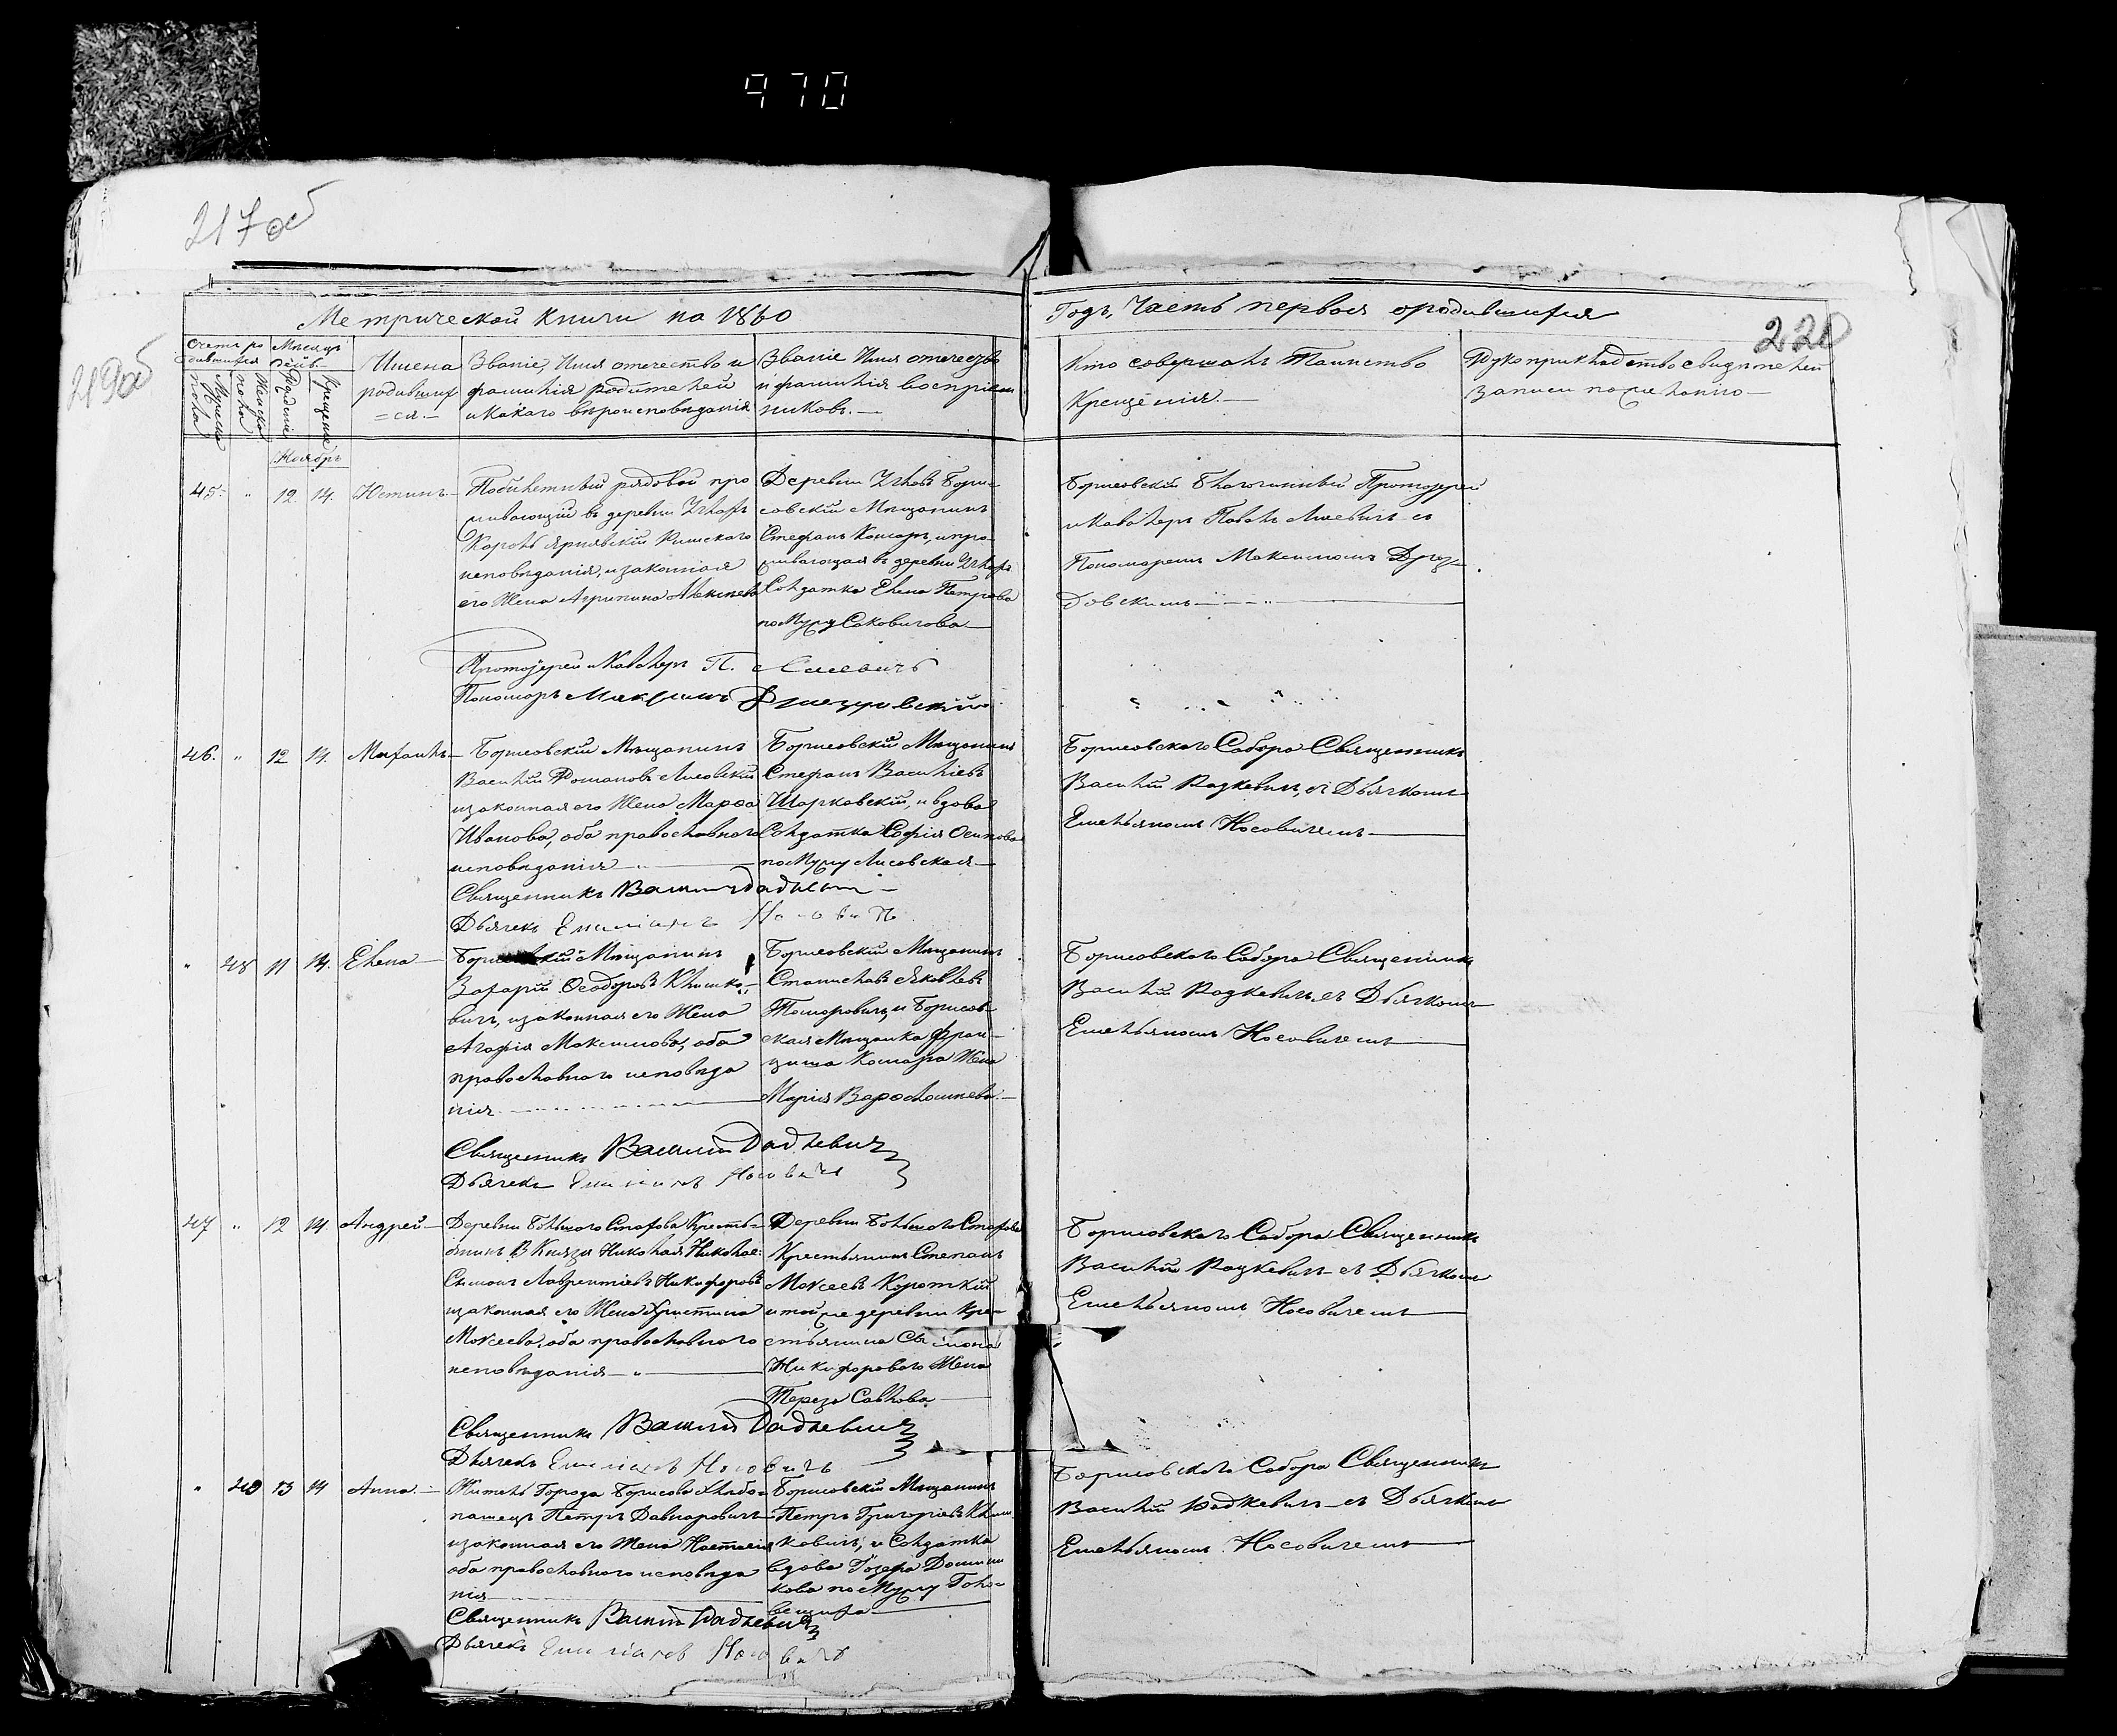 970
217 об
219 об
220
Метрической книги на 1860
Годъ, Часть первая о родившихся
Счетъ ро
дившихся
Мужеска
пола
Женска
пола
Месяцъ
и день
Рожденіе
Крещеніе
Имена
родивших
=ся.—
Званіе, Имя отечество и
фамилія родителей
и какого вероисповеданія
Званіе Имя отечество
и фамилія воспріем
никовъ.—
Кто совершалъ Таинство
Крещенія.—
Рукоприкладство свидетелей
записи по желанію—
Ноябрь
45. " 12 14. Юстинъ.—
Безсрочный рядовой про
живающій въ деревни
исповеданія, и законная
его Жена Агрипина
Деревни Бори-
совскій Мещанинъ
Стефанъ Комаръ, и про-
живающая въ деревни
Солдатка Елена Петрова
по Мужу Саковичова—
Борисовскій Благочинный Протоіерей
и Кавалеръ Павелъ Лисевичъ съ
Пономаремъ Максимомъ
Протоіерей и Кавалеръ П. Лисевичъ
Пономарь Максимъ
46. " 12 14. Михаилъ—
Борисовскій Мещанинъ
Василій Романовъ Лисовскій
и законная его Жена Марѳа
Иванова, оба православнаго
исповеданія—"—
Борисовскій Мещанинъ
Стефанъ Василіевъ
Шарковскій, и вдова
Солдатка Софія Осипова
по Мужу Лисовская—
Борисовскаго Собора Священникъ
Василій Радкевичъ, съ Дьячкомъ
Емельяномъ Носовичемъ—
Священникъ Василій Радкевич—
Дьячекъ Емиліанъ Носовичъ
" 48 11 14. Елена—
Борисовскій Мещанинъ
Захарій Ѳеодоровъ Климко-
вичъ, и законная его Жена
Агафія Максимова, оба
православнаго исповеда
нія—
Борисовскій Мещанинъ
Станиславъ Яковлевъ
Томаровичъ, и Борисов-
ская Мещанка Фран-
циша Комара Жена
Марія Варѳоломеева.—
Борисовскаго Собора Священникъ
Василій Радкевичъ съ Дьячкомъ
Емельяномъ Носовичемъ—
Священникъ Василій Радкевичъ
Дьячекъ Емиліанъ Носовичъ
47 " 12 14. Андрей—
Деревни Большого Стахова Кресть-
янинъ В Князя Николая Николае:
Сымонъ Лаврентіевъ Никифоровъ
и законная его Жена Христина
Мокеева, оба православнаго
исповеданія—"—
Деревни Большого Стахова
Крестьянинъ Степанъ
Мокеевъ Короткій
и той же деревни Кре-
стьянина Сымона
Никифороваго Жена
Тереза Савкова—
Борисовскаго Собора Священникъ
Василій Радкевичъ—съ Дьячкомъ
Емельяномъ Носовичемъ—
Священникъ Василій Радкевичъ
Дьячекъ Емиліанъ Носовичъ
" 49 13 14 Анна.—
Житель Города Борисова хлебо-
пашецъ Петръ
и законная его Жена Настасія
оба православнаго исповеда
нія—
Борисовскій Мещанинъ
Петръ Григоріевъ Клим
ковичъ, и Солдатка
вдова Іозефа Домини
кова по Мужу
Борисовскаго Собора Священникъ
Василій Радкевичъ—съ Дьячкомъ
Емельяномъ Носовичемъ—
Священникъ Василій Радкевичъ
Дьячекъ Емиліанъ Носовичъ